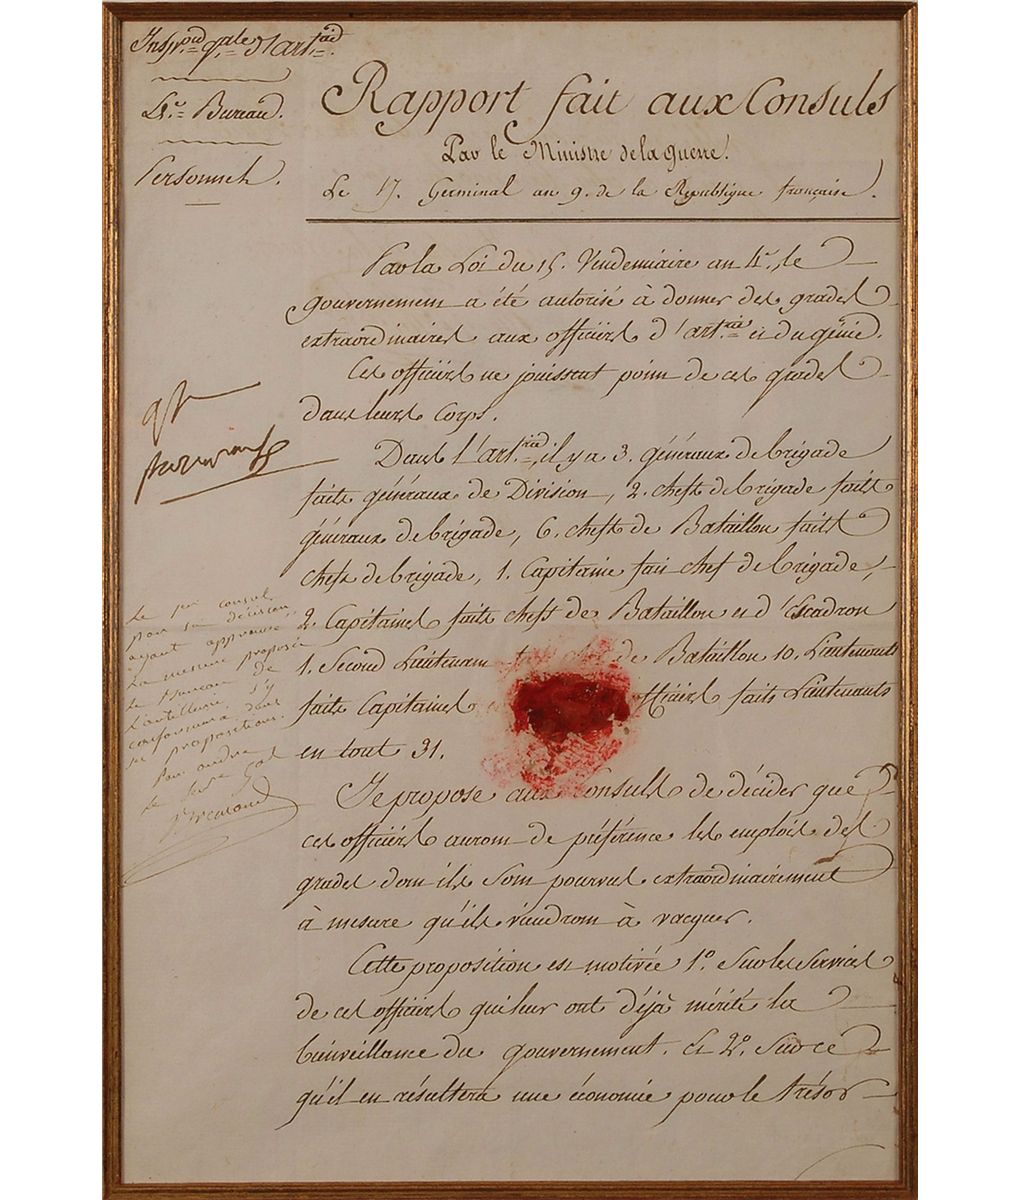 Insp.on g.ale d'art.ie
4e. Bureau.
Personnel.
Rapport fait aux Consuls
Par le Ministre de la Guerre.
Le 17. Germinal an 9. de la République française.
Par la Loi du 15. Vendemiaire an 4e., le
gouvernement a été autorisé à donner des grades
extraordinaires aux officiers d'art.ie et du génie.
Ces officiers ne jouissent point de ces grades
dans leurs Corps.
Dans l'art.ie, il y a 3. généraux de brigade
faits généraux de Division, 2. chefs de brigade faits
généraux de brigade, 6. chefs de Bataillon faits
chefs de brigade, 1. Capitaine fait chef de brigade,
2. Capitaines faits chefs de Bataillon et d'Escadron
1. Second Lieutenant de Bataillon 10. Lieutenants
faits Capitaines officiers faits Lieutenants
en tout 31.
Je propose aux Consuls de décider que
ces officiers auront de préférence les emplois des
grades dont ils sont pourvus extraordinairement
à mesure qu'ils viendront à vacquer.
Cette proposition est motivée 1o. Sur les Services
de ces officiers qui leur ont déjà mérité la
bienveillance du gouvernement. Et 2o. Sur ce
qu'il en résultera une économie pour le trésor
Le 1er consul
par sa décision
ayant approuvé
la mesure proposée
le Bureau de
l'artillerie s'y
conformera dans
ses propositions.
Par ordre